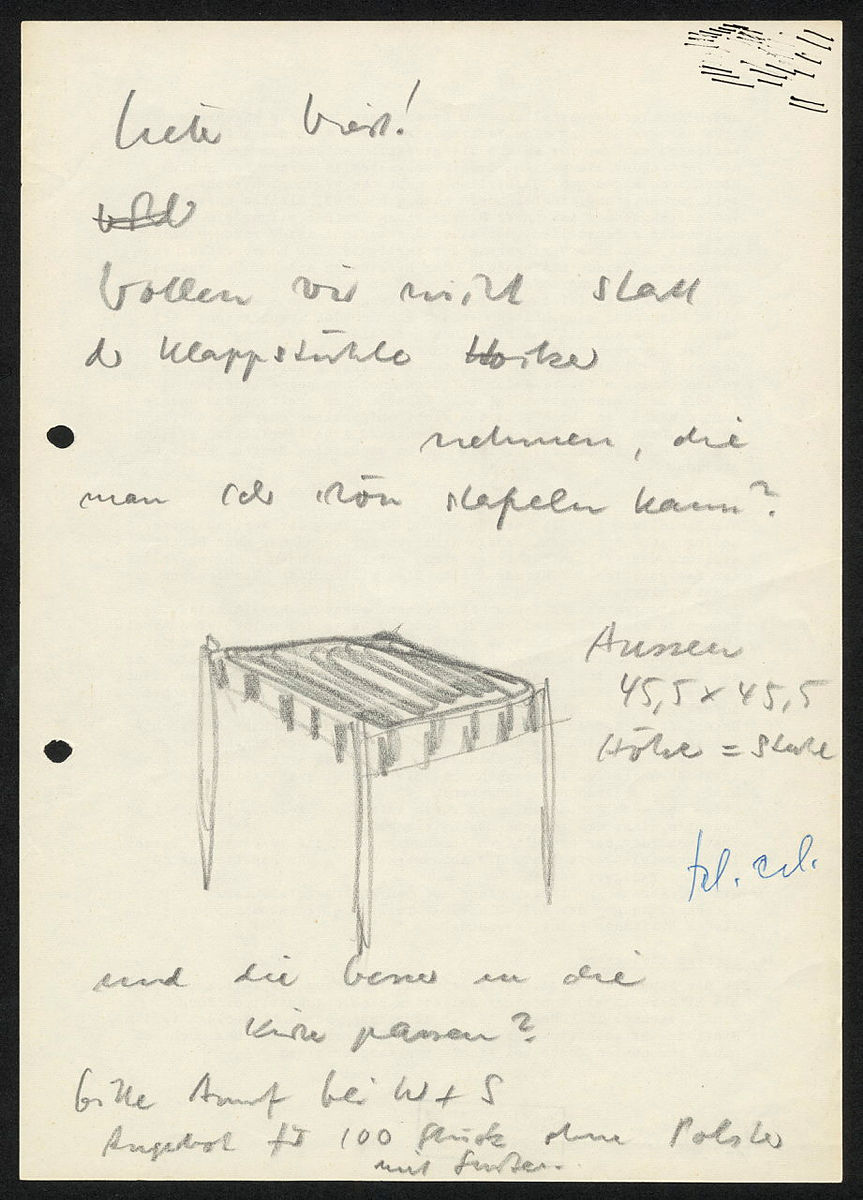 Wollen wir nicht statt
der Klappstühle Hocker
nehmen, die
man sehr schön stapeln kann?
Aussen
45,5 x 45,5
Höhe = Stuhl
tel. erl.
und die besser in die
Kirche passen?
bitte Anruf bei W + S
Angebot für 100 Stück ohne Polster
mit